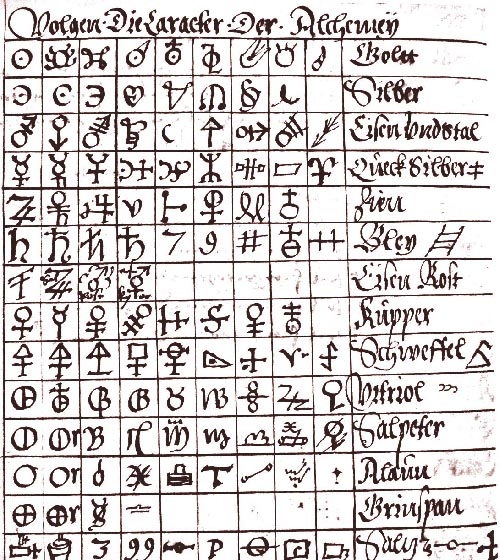 Volgen Die Caracter Der Alchemeÿ
Goldt
Silber
Eisen Vnd Stal
Queck Silber
Zien
Bleÿ
Eisen Rost
Kupper
Schweffel
Vitriol
Salpeter
Alaun
Grinspan